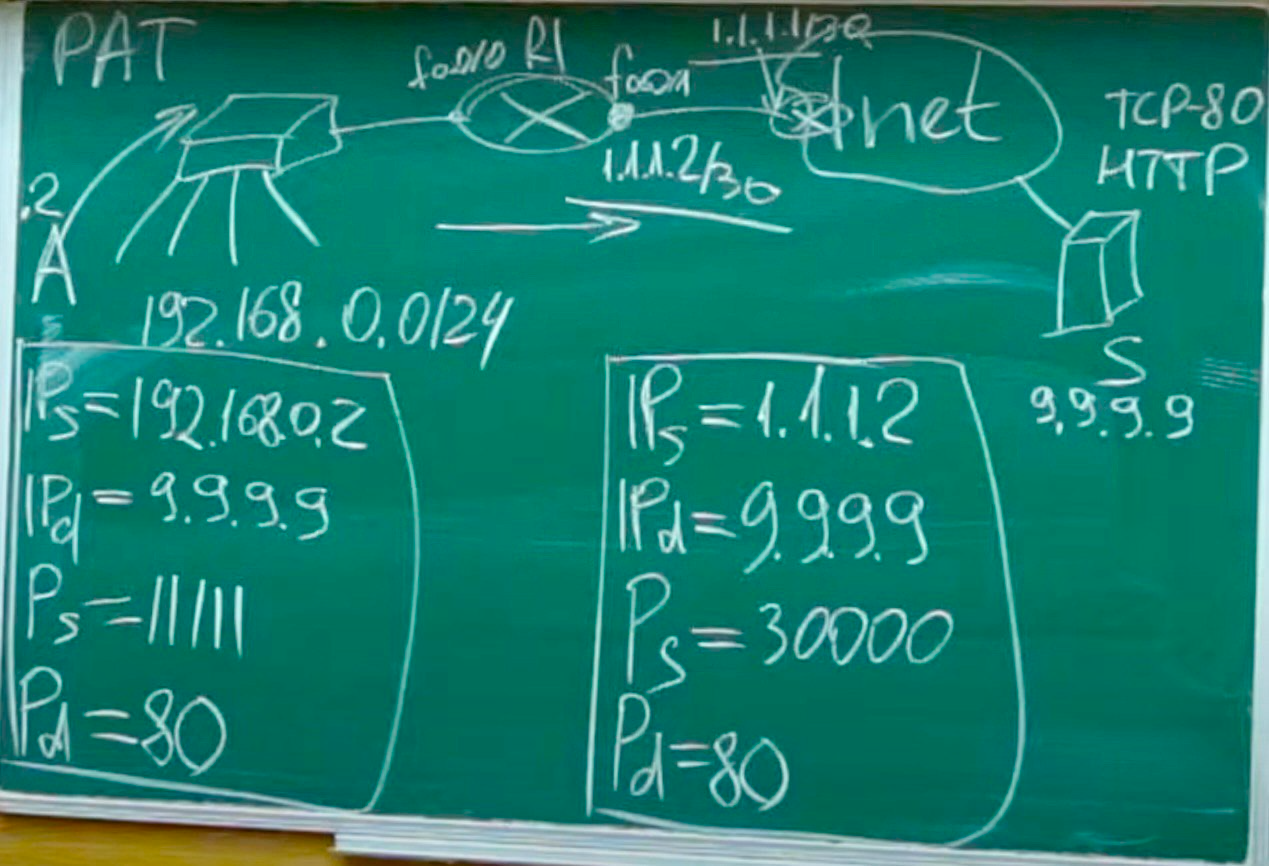 PAT
fa0/0
R1
fa0/1
1.1.1.1/30
Inet
1.1.1.2/30
TCP-80
HTTP
.2
A
192.168.0.0/24
S
9.9.9.9
IPs=192.168.0.2
IPd=9.9.9.9
Ps=11111
Pd=80
IPs=1.1.1.2
IPd=9.9.9.9
Ps=30000
Pd=80